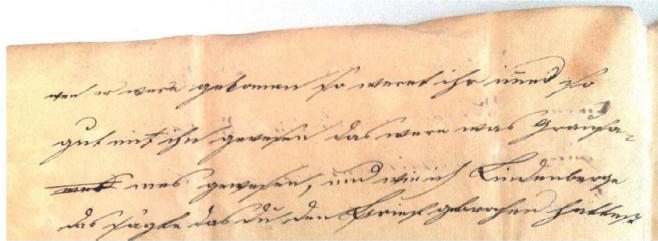 wen er were gekomen so weret ihr immer so
gut mit ihn gewesen das were was Grausa-
mes gewesen, und wie ich Lindenberge
das sagte das du den Brief gebrochen hattest